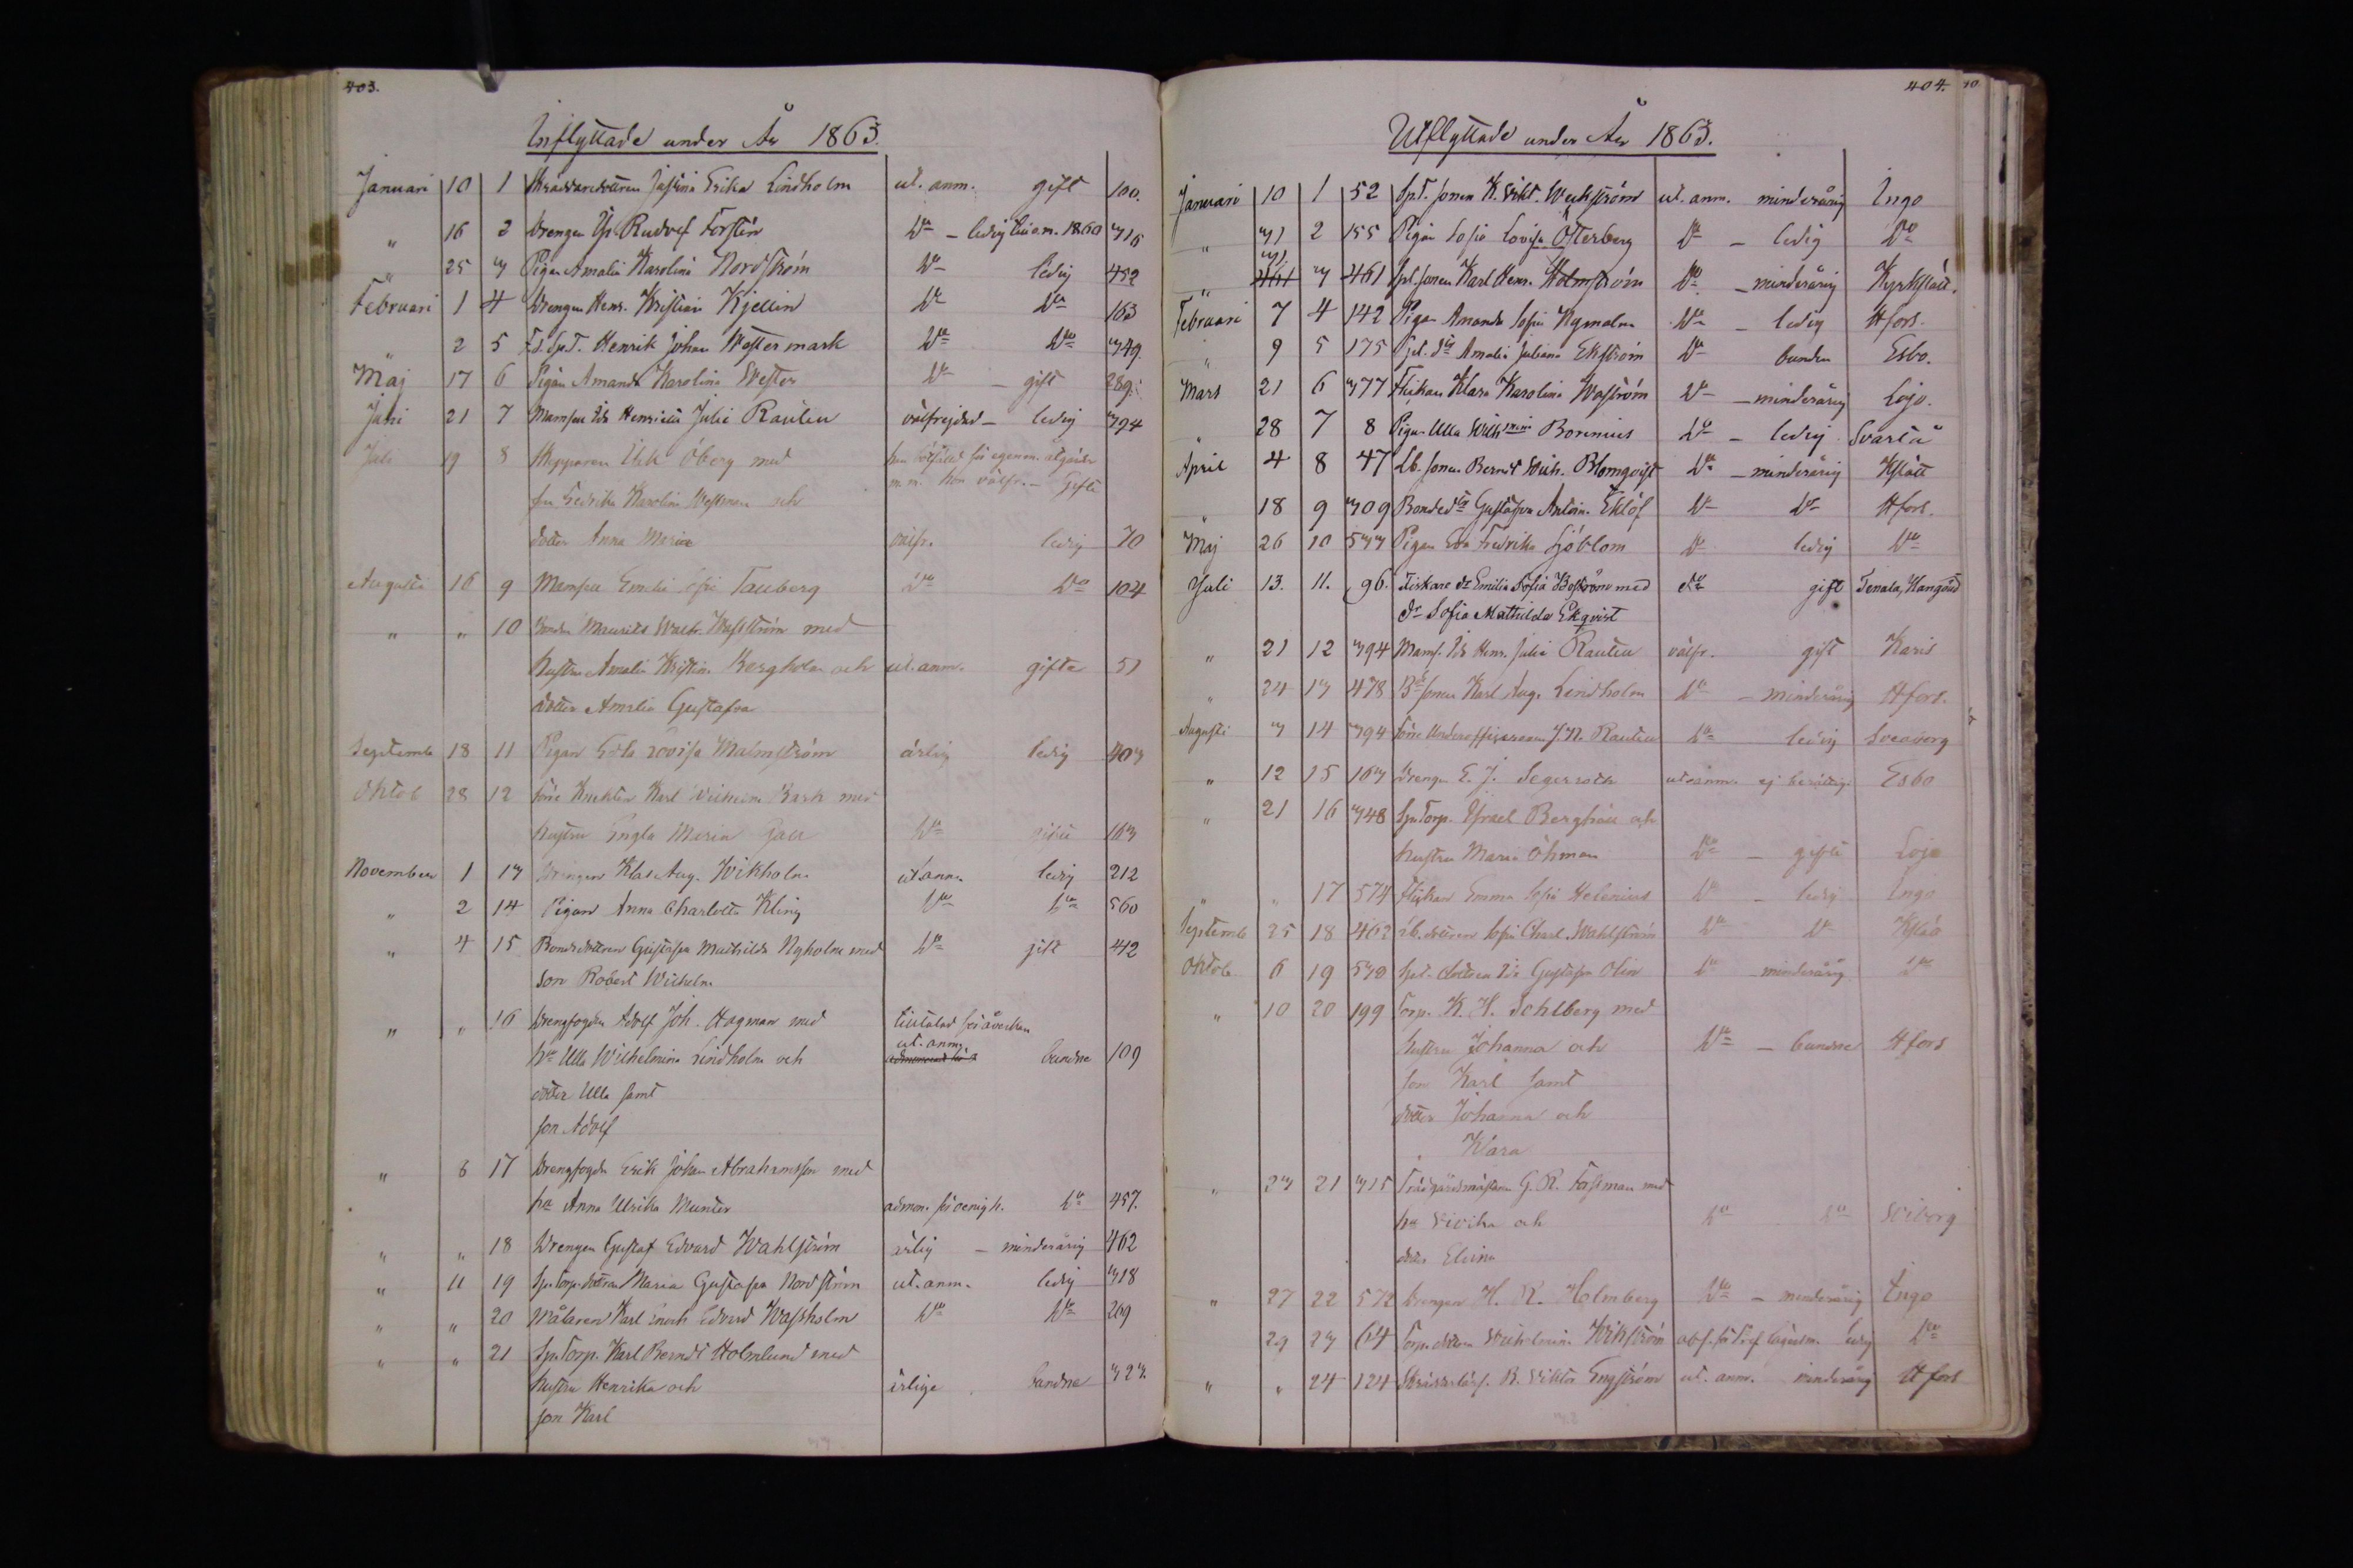 403.
Inflyttade under År 1863.
Januari 10 1 Skräddaredottren Josefina Erika Lindholm ut. anm. gift 100.
" 16 2 Drengen Gst Rudolf Forstén Do - ledig till o.m. 1860 316
" 25 3 Pigan Amalia Karolina Nordström Do ledig 452
Februari 1 4 Drengen Henr. Kristian Kjellin Do Do 163
" 2 5 Fd. SpT. Henrik Johan Westermark Do Do 349.
Maj 17 6 Pigan Amanda Karolina Wester Do - gift 289.
Juni 21 7 Mamsell Ida Henrietta Julia Rautell välfrejdad - ledig 394
Juli 19 8 Skepparen Erik Öberg med
m.m. hon välfr. - gifte
fru Fredrika Karolina Westman och
dotter Anna Maria välfr. ledig 70
Augusti 16 9 Mamsell Emelie Sofia Tauberg Do Do 104
" " 10 Bonden Maurits Walfr. Wasström med
hustru Amalia Kristina Bergholm och ut. anm. gifta 51
dotter Amalia Gustafva
Septemb 18 11 Pigan Edla Lovisa Malmström ärlig ledig 403
Oktob 28 12 förre Knekten Karl Wilhelm Bask med
hustru Engla Maria Do gifte 163
November 1 13 Drengen Klas Aug. Wikholm ut. anm. ledig 212
" 2 14 Pigan Anna Charlotta Kling Do Do 560
" 4 15 Bondedottren Gustafva Mathilda Nyholm med Do gift 42
son Robert Wilhelm
" " 16 Drengfogden Adolf Joh. Hagman med tilltalad för åverkan
ut. anm.
hu Ulla Wilhelmina Lindholm och bundne 109
dotter Ulla samt
son Adolf
" 8 17 Drengfogden Erik Johan Abrahamsson med
hu Anna Ulrika Munter admon. för oenigh. Do 457.
" " 18 Drengen Gustaf Edvard Wahlström ärlig - minderårig 462
" 11 19 Sp.Torp.dottren Maria Gustafva Nordström ut. anm. ledig 318
" " 20 Målaren Karl Enoch Edvard Wassholm Do Do 269
" " 21 Sp.Torp. Karl Berndt Holmlund med
hustru Henrika och ärlige bundne 323.
son Karl
404.
Utflyttade under År 1863.
Januari 10 1 52 Sp.T. sonen K. Vikt. Weckström ut. anm. minderårig Ingo
" 31 2 155 Pigan Sofia Lovisa Österberg Do - ledig Do
31
" 461 3 461 Spl. sonen Karl Henr. Holmström Do - minderårig Kyrkslätt.
Februari 7 4 142 Pigan Amanda Sofia Nymalm Do - ledig Hfors.
" 9 5 175 Amalia Juliana Ekström Do bunden Esbo.
Mars 21 6 377 Flickan Klara Karolina Wasström Do - minderårig Lojo.
" 28 7 8 Pigan Ulla Wilhmina Boremius Do - ledig Svartå
April 4 8 47 Lb. sonen Bernt Wilh. Blomqvist Do - minderårig Kslätt
" 18 9 309 Bondedr Gustafva Antoin. Eklöf Do Do Hfors.
Maj 26 10 533 Pigan Eva Fredrika Sjöblom Do ledig Do
Juli 13. 11. 96. Fiskare dr Emilia Sofia Boström med do gift Tenala, Hangöudd
dr Sofia Mathilda Ekqvist
" 21 12 394 Mams. Ida Henr. Julia Rautell välfr. gift Karis
" 24 13 478 Bd sonen Karl Aug. Lindholm Do - minderårig Hfors.
Augusti 3 14 394 förre Underofficeraren J. N. Rautell Do ledig Sveaborg
" 12 15 163 Drengen E. J. Segerroth ut. anm. ej Esbo
" 21 16 348 Sp.Torp. Israel Berghäll och
hustru Maria Öhman Do - gifte Lojo
" " 17 574 Flickan Emma Sofia Helenius Do - ledig Ingo
Septemb 25 18 462 Lb. dottren Sofia Charl. Wahlström Do Do Kslätt
Oktob 6 19 Spt. dottren Ida Gustafva Olin Do minderårig Do
" 10 20 199 Torp. K. H. Sohlberg med
hustru Johanna och Do - bundne Hfors
son Karl samt
dotter Johanna och
" Klara
" 23 21 315 Trädgårdsmästaren G. R. Forsman med
hu Vivika och Do Do Wiborg
dotter Elvina
" 27 22 572 Drengen H. R. Holmberg Do - minderårig Ingo
" 29 23 64 Torp. dottren Wilhelmina Wikström ledig Do
" " 24 124 K. Viktor Engström ut. anm. minderårig Hfors